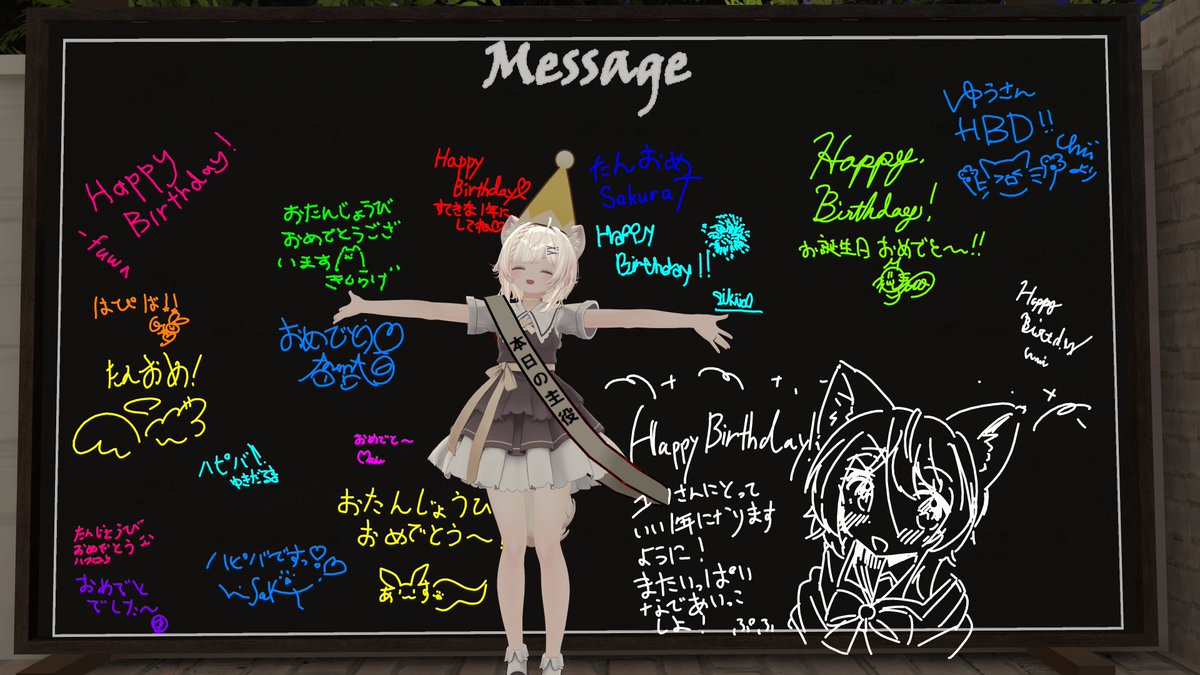 Message
Happy
Birthday!
fuwa
おたんじょうび
おめでとうござ
います
きくらげ
Happy
Birthday♡
すてきな1年に
してね♡
たんおめ
SakuraT
Happy
Birthday!!
Happy
Birthday!
お誕生日 おめでと〜!!
ゆうさん
HBD!!
chiiより
Happy
Birthday
はぴば!!
おめでとう♡
たんおめ!
本日の主役
ハピバ!!
ゆきだるま
おめでと〜
おたんじょうひ
おめでとう〜
あーす
たんじょうび
おめでとう
おめでと
でした〜
ハピバですっ♡♡
Happy Birthday!!
さんにとって
いい1年になります
ように!
またいっぱい
なであいっこ
しよ!